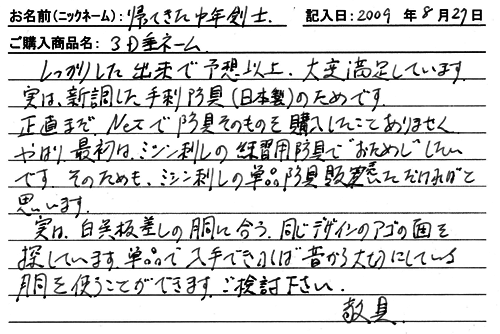 お名前(ニックネーム): 帰ってきた中年剣士. 記入日: 2009 年 8 月 27 日
ご購入商品名: 3D垂ネーム.
しっかりした出来で予想以上、大変満足しています.
実は、新調した手刺防具(日本製)のためです.
正直まだ、Netで防具そのものを購入したことありません
やはり、最初は、ミシン刺しの練習用防具で"おためし"したい
です. そのためも、ミシン刺しの単品防具販売いただければと
思います.
実は、白呉板差しの胴に合う、同じデザインのアゴの面を
探しています. 単品で入手できれば昔から大切にしている
胴を使うことができます. ご検討下さい.
敬具.